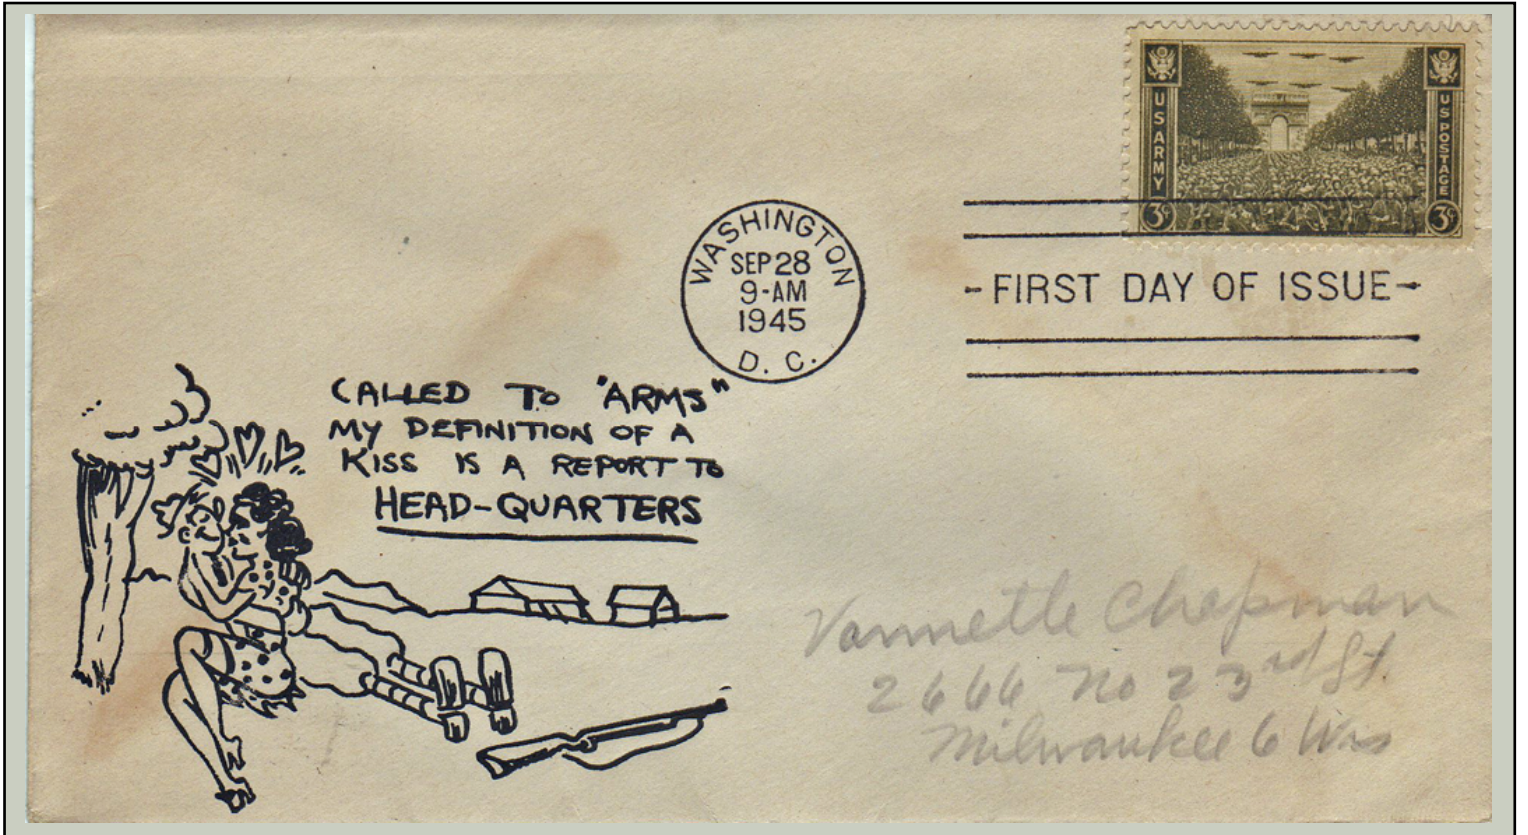 US ARMY
US POSTAGE
3¢
3¢
WASHINGTON
SEP 28
9-AM
1945
D. C.
-FIRST DAY OF ISSUE-
CALLED TO "ARMS"
MY DEFINITION OF A
KISS IS A REPORT TO
HEAD-QUARTERS
Vannette Chapman
2666 No 23rd St.
Milwaukee 6 Wis